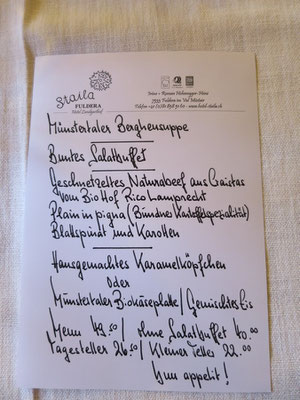 Staila
FULDERA
Hotel Landgasthof
7533 Fuldera im Val Müstair
Münstertaler Bergheusuppe
Buntes Salatbuffet
Geschnetzeltes Naturabeef aus Craistas
vom Bio Hof Rico Lamprecht
Plain in pigna (Bündner Kartoffelspezialität)
Blattspinat und Karotten
Hausgemachtes Karamelköpfchen
oder
Münstertaler Biokäseplatte / Gemischtes Eis
Menu 49.50 / ohne Salatbuffet 40.00
Tagesteller 26.50 / Kleiner Teller 22.00
Bun appetit!